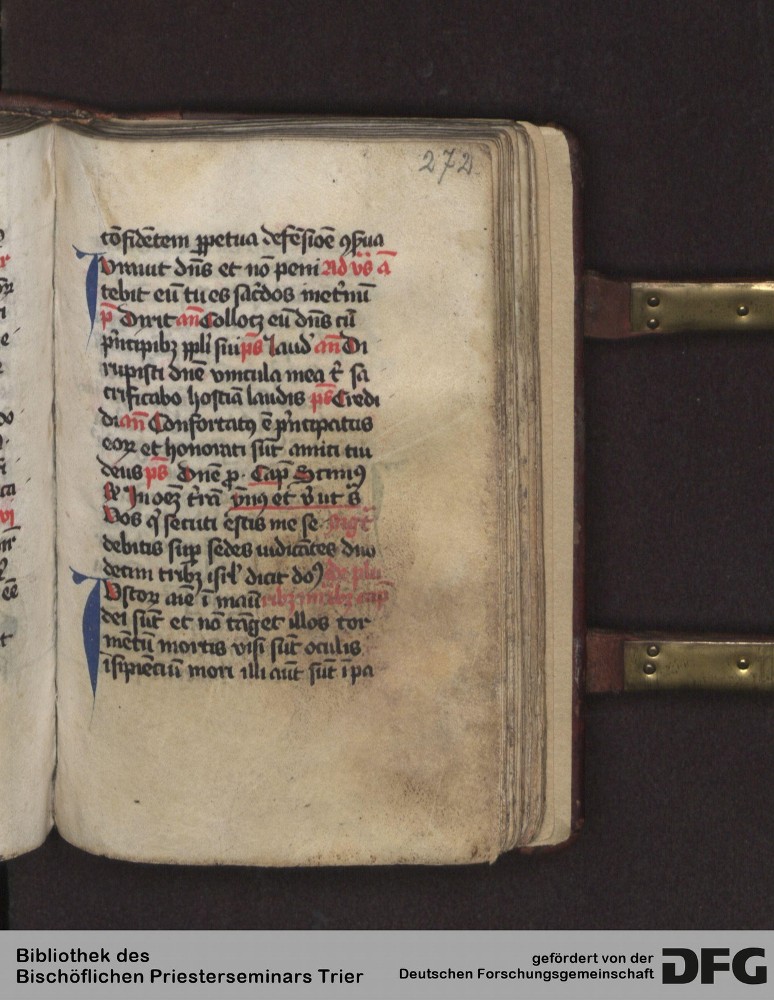 272
cōfidētem ꝑpetua defēsiōe ꝯẜua
Iurauit dn̄s et nō peni Ad vs̄ a͞
tebit eū tu es sac̄dos inet̄nū
p̄ Dixit an̄ Collocꝫ eū dn̄s cū
pͥncipibꝫ ppl̓i sui ps̄ laud̓ an̄ Di
rupisti dn̄e vincula mea t̓ sa
crificabo hostiā laudis ps̄ Credi
di an̄ Confortatꝯ ē pͥncipatus
eoꝝ et honorati sūt amici tui
deus ps̄ Dn̄e ꝓ. Cap̄
In oēꝫ t̓rā ẏnꝯ et v̓ ut s̓
Vos qͥ secuti estis me se
debitis suꝑ sedes iudicātes duo
decim tribꝫ isrl̓ dicit do
Iustoꝝ aīe ī manu
dei sūt et nō tāget illos tor
mētū mortis visi sūt oculis
īsipiētiū mori illi aūt sūt ī pa
Bibliothek des
Bischöflichen Priesterseminars Trier
gefördert von der
Deutschen Forschungsgemeinschaft
DFG